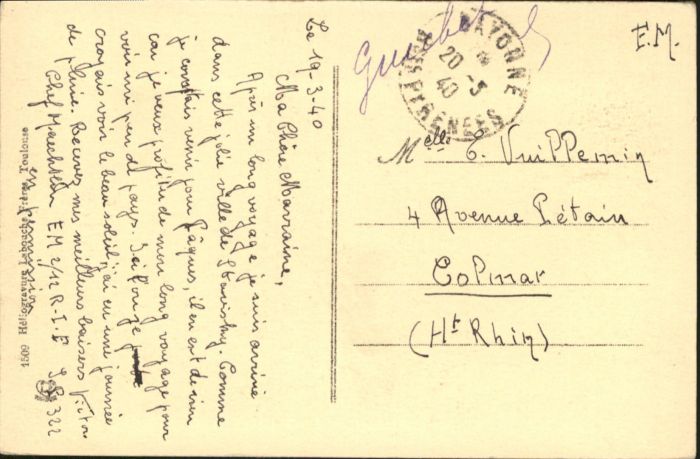 Le 19-3-40
Ma Chère Marraine,
Après un long voyage je suis arrivé
dans cette jolie ville de Comme
je comptais venir pour Pâques, il en est de rien
car je veux profiter de mon long voyage pour
voir un peu de pays. Ici où je
croyais voir le beau soleil, j'ai eu une journée
de pluie. Recevez mes meilleurs baisers Victor
Chef EM 2/12 R.I.F SP 322
1509 Héliogravure Toulouse
E.M.
BAYONNE
20 - 3
40
BSES PYRENEES
Melle C. Vuillemin
4 Avenue Pétain
Colmar
(Ht Rhin)